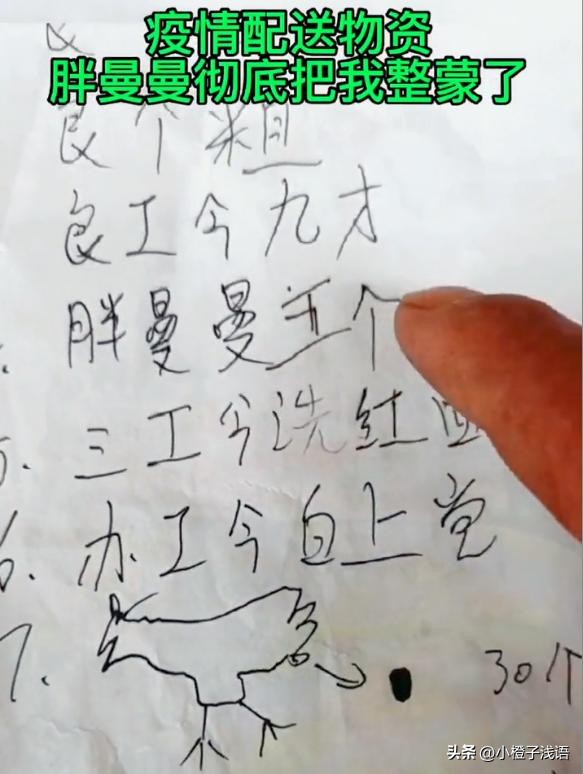 疫情配送物资
胖曼曼彻底把我整蒙了
良个米且
良工今九才
胖曼曼五个
5. 三工今洗红
6. 办工今白上党
7. 30个
头条 @小橙子浅语